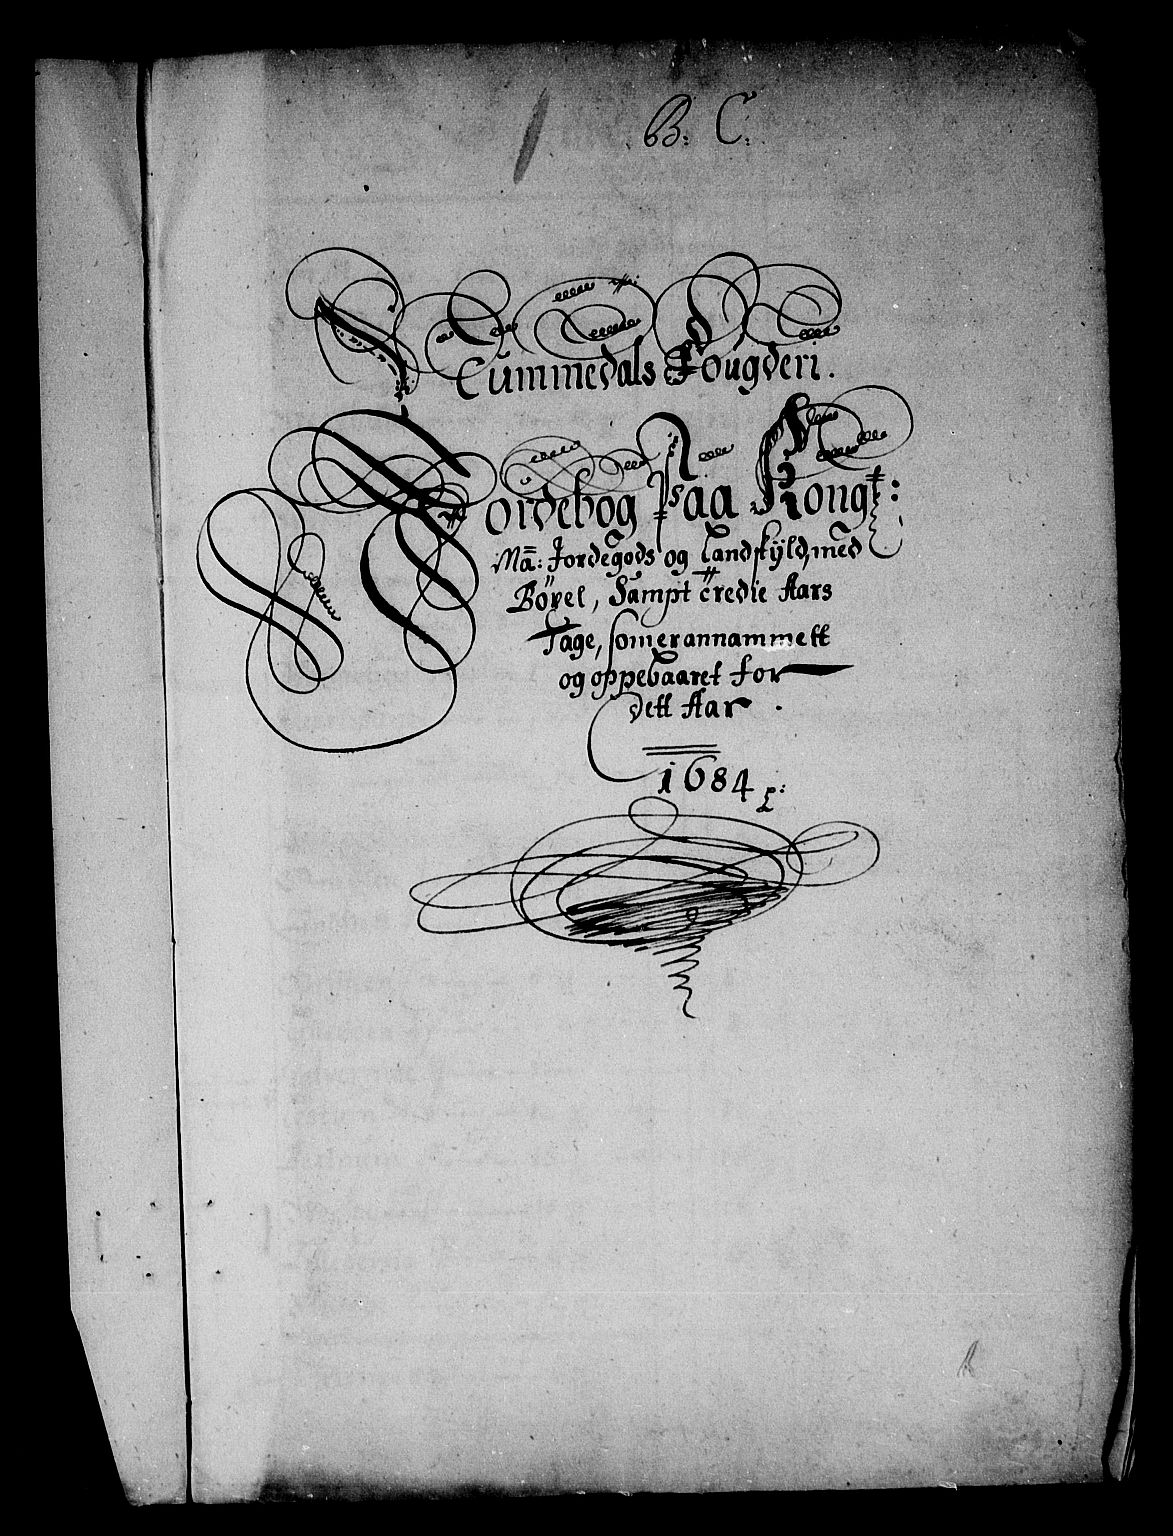 B: C:
Nummedals Fougderi.
Jordebog Paa Kongl:
Ma: Jordegods og Landskÿld, med
Böxel, Sampt tredie Aars
Tage, som er annammett
og oppebaaret for
dett Aar.
1684